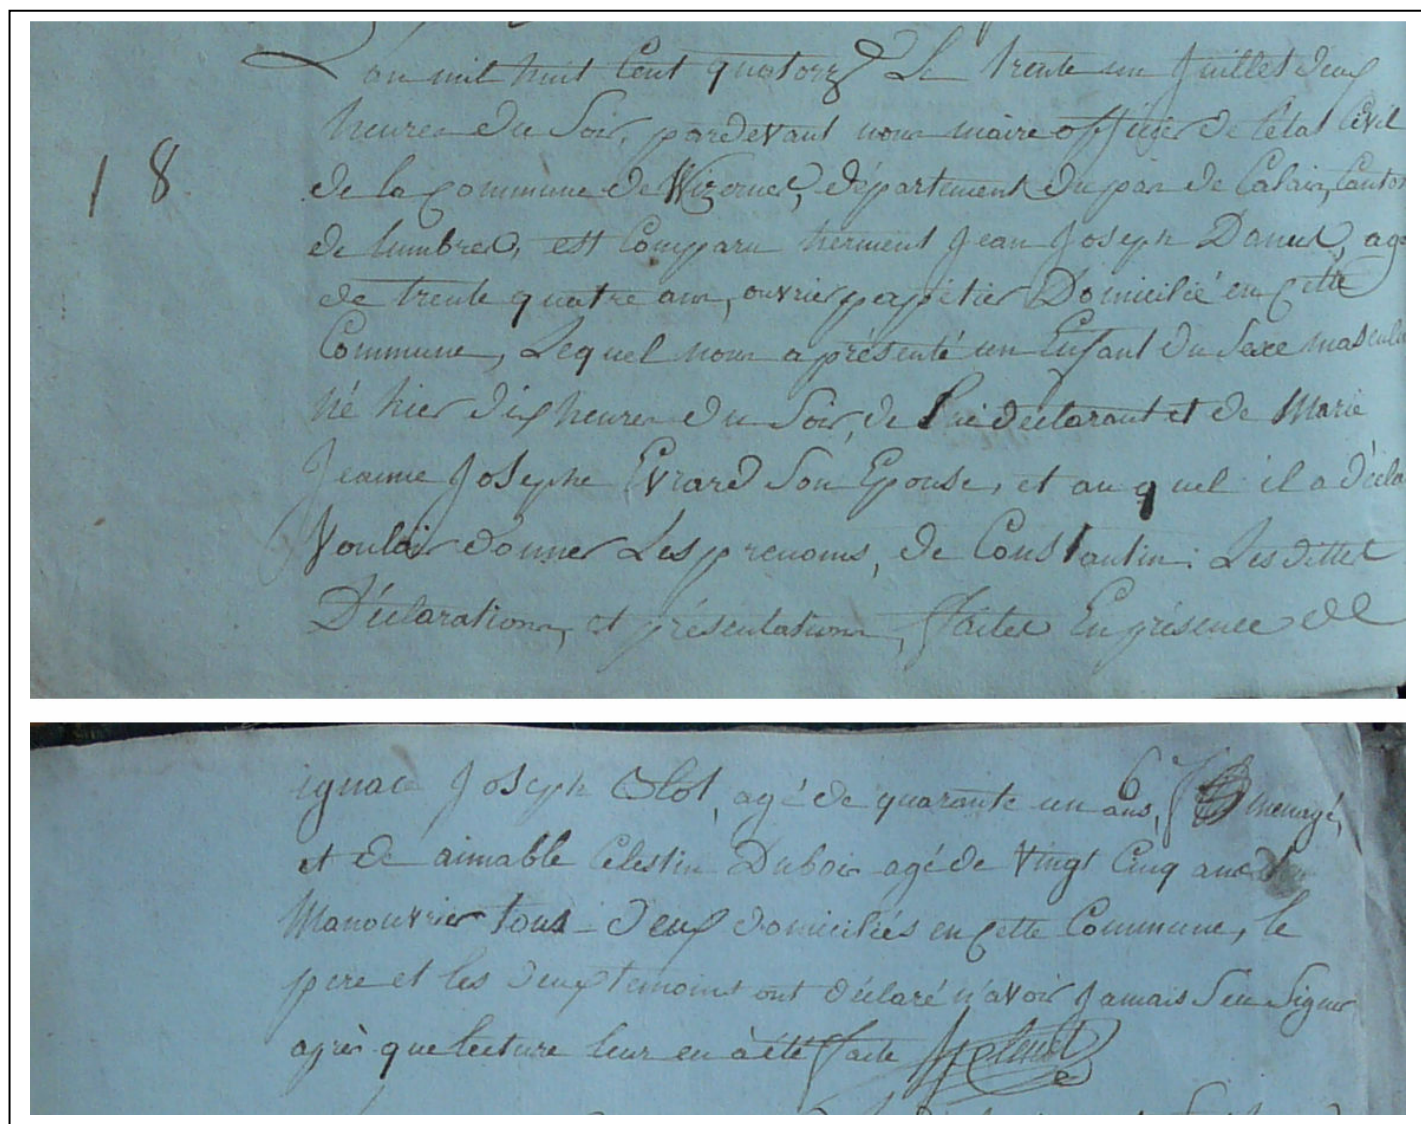 L'an mil huit Cent quatorze Le trente un Juillet deux
heures du Soir, pardevant nous maire officier de l'état Civil
18
de la Commune de Wizernes, département du pas de Calais, Canton
de lumbres, est Comparu herment Jean Joseph Daniel, agé
de trente quatre ans, ouvrier papétier Domicilié en Cette
Commune, Lequel nous a présenté un Enfant du Sexe masculin
né hier dix heures du Soir, de lui déclarant et de Marie
Jeanne Josephe Evrard Son Epouse, et au quel il a décla
Vouloir donner Les prenoms, de Constantin. Les dittes
Déclarations, et présentations, faites En présence de
ignace Joseph Clot, agé de quarante un ans, menagé,
et de aimable Célestin Dubois agé de Vingt Cinq ans
Manouvrier tous - deux domiciliés en Cette Commune, le
pere et les deux temoins ont déclaré n'avoir Jamais Seu Signer
après que lecture leur en à été faite